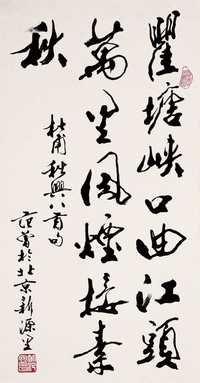 瞿塘峡口曲江頭
萬里風煙接素
秋
杜甫秋興八首句
范曾於北京新源里